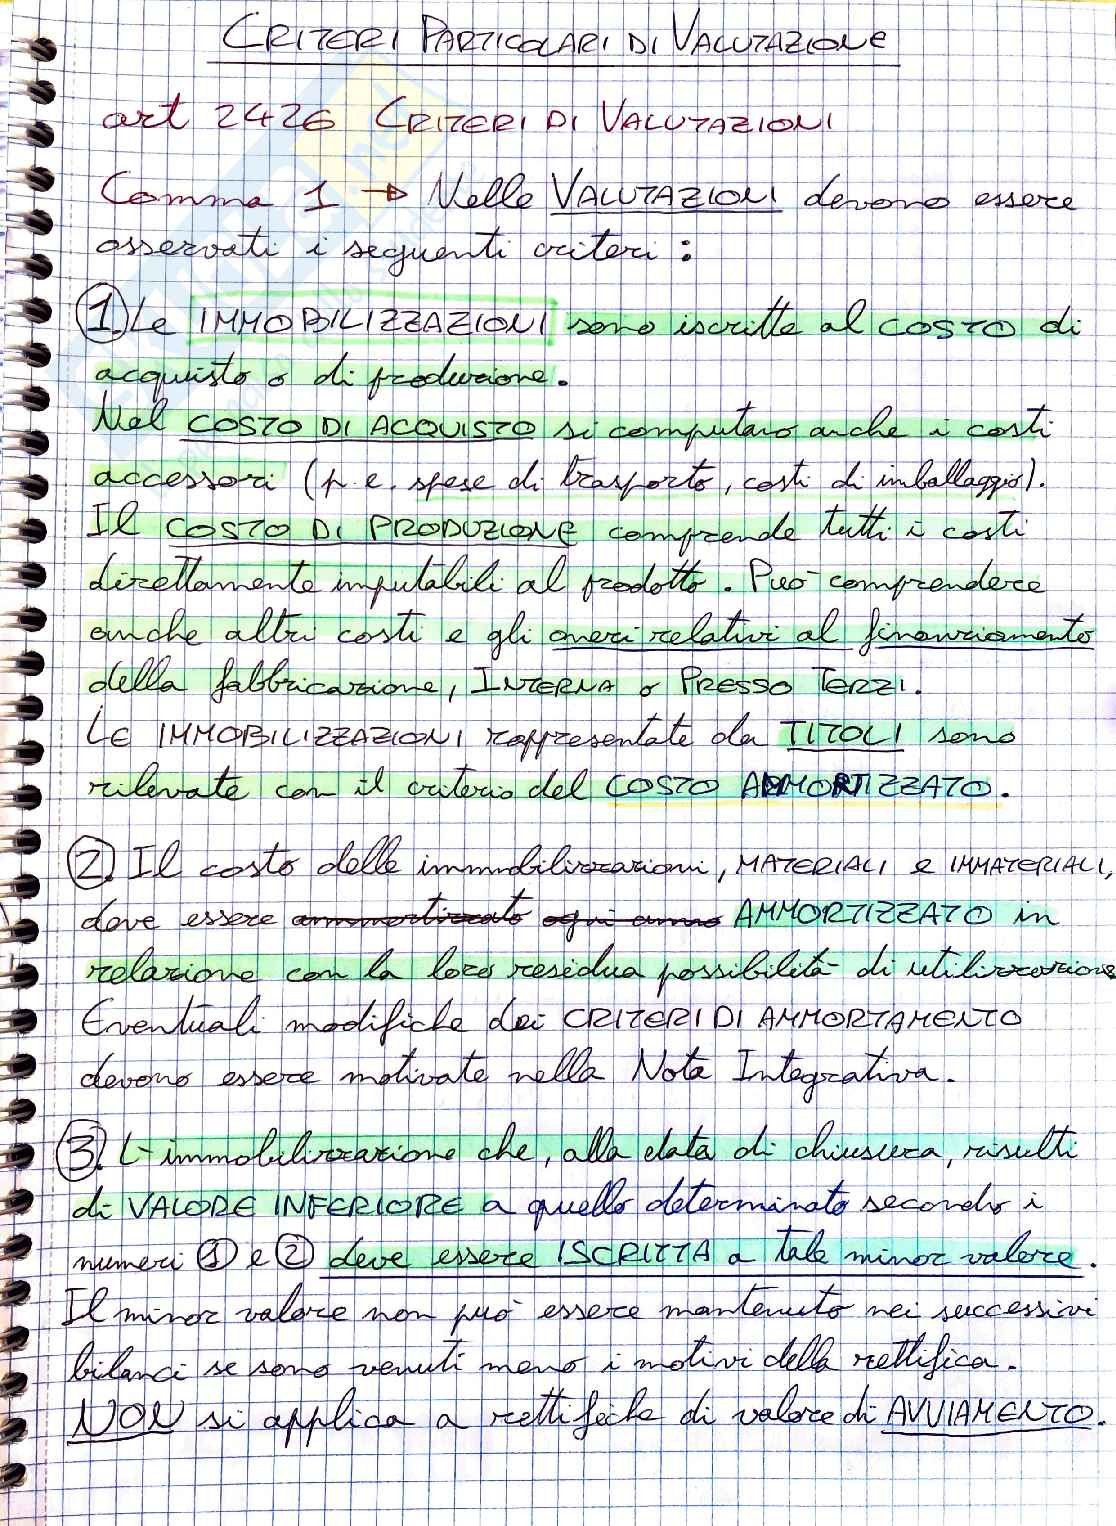 CRITERI PARTICOLARI DI VALUTAZIONE
art 2426 CRITERI DI VALUTAZIONI
Comma 1 → Nelle VALUTAZIONI devono essere
osservati i seguenti criteri :
1. Le IMMOBILIZZAZIONI sono iscritte al COSTO di
acquisto o di produzione.
Nel COSTO DI ACQUISTO si computano anche i costi
accessori (p.e. spese di trasporto, costi di imballaggio).
Il COSTO DI PRODUZIONE comprende tutti i costi
direttamente imputabili al prodotto. Può comprendere
anche altri costi e gli oneri relativi al finanziamento
della fabbricazione, INTERNA o PRESSO TERZI.
Le IMMOBILIZZAZIONI rappresentate da TITOLI sono
rilevate con il criterio del COSTO AMMORTIZZATO.
2. Il costo delle immobilizzazioni, MATERIALI e IMMATERIALI,
deve essere ammortizzato ogni anno AMMORTIZZATO in
relazione con la loro residua possibilità di utilizzazione
Eventuali modifiche dei CRITERI DI AMMORTAMENTO
devono essere motivate nella Nota Integrativa.
3. L'immobilizzazione che, alla data di chiusura, risulti
di VALORE INFERIORE a quello determinato secondo i
numeri 1 e 2 deve essere ISCRITTA a tale minor valore.
Il minor valore non può essere mantenuto nei successivi
bilanci se sono venuti meno i motivi della rettifica.
NON si applica a rettifiche di valore di AVVIAMENTO.